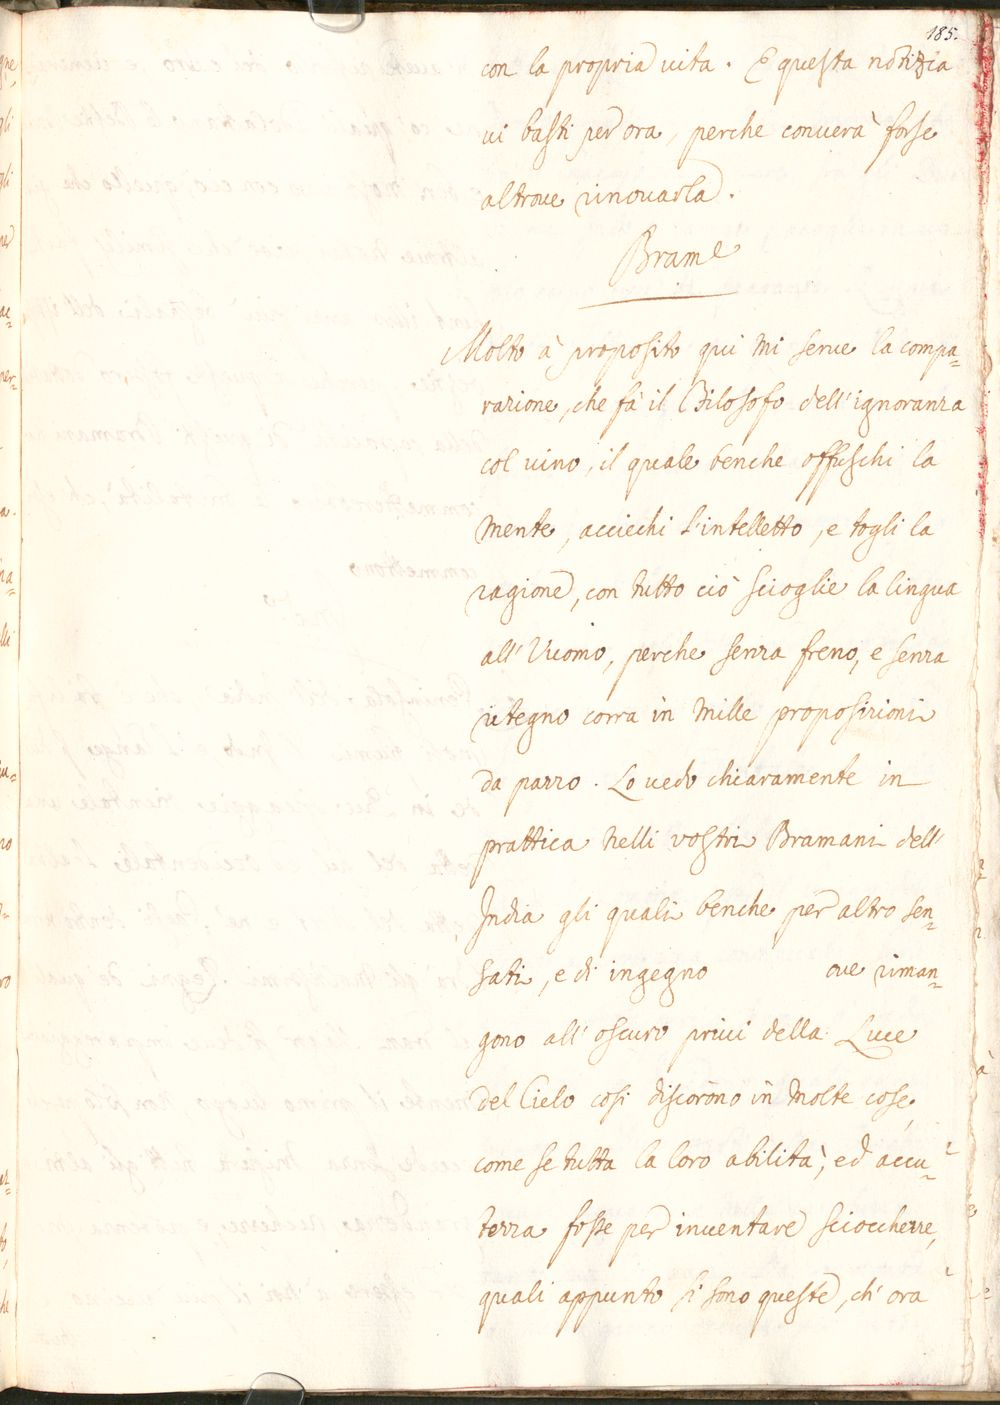 185.
con la propria vita. E questa notizia
vi basti per ora, perche converà forse
altrove rinovarla.
Brame
Molto à proposito qui mi serve la compa=
razione, che fà il Filosofo dell'ignoranza
col vino, il quale benche offuschi la
mente, acciechi l'intelletto, e togli la
ragione, con tutto ciò scioglie la lingua
all'Vuomo, perche senza freno, e senza
ritegno corra in mille proposizioni
da pazzo. Lo vedo chiaramente in
prattica nelli vostri Bramani dell'
India gli quali benche per altro sen=
sati, e di ingegno ove riman=
gono all'oscuro privi della Luce
del Cielo cosi discorono in molte cose,
come se tutta la loro abilità, ed accu=
tezza fosse per inventare sciocchezze,
quali appunto si sono queste, ch'ora